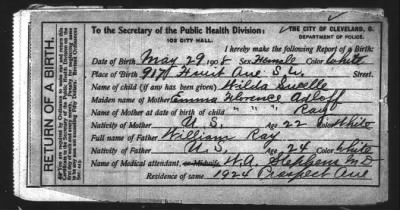 RETURN OF A BIRTH.
To the Secretary of the Public Health Division:
THE CITY OF CLEVELAND, O.
DEPARTMENT OF POLICE.
103 CITY HALL.
I hereby make the following Report of a Birth:
Date of Birth May 29 1908 Sex Female Color White
Place of Birth Ave S.W. Street.
Name of child (if any has been given) Wilda Lucelle
Maiden name of Mother Emma Florence Adloff
Name of Mother at date of birth of child " " " Ray
Nativity of Mother U.S. Age 22 Color White
Full name of Father William Ray
Nativity of Father U.S. Age 24 Color White
Name of Medical attendant, or Midwife W.A. Stephens M D
Residence of same 1924 Prospect Ave